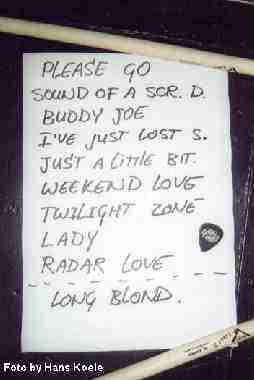 PLEASE GO
SOUND OF A SCR. D.
BUDDY JOE
I'VE JUST LOST S.
JUST A LITTLE BIT.
WEEKEND LOVE
TWILIGHT ZONE
LADY
RADAR LOVE
LONG BLOND.
Foto by Hans Koele